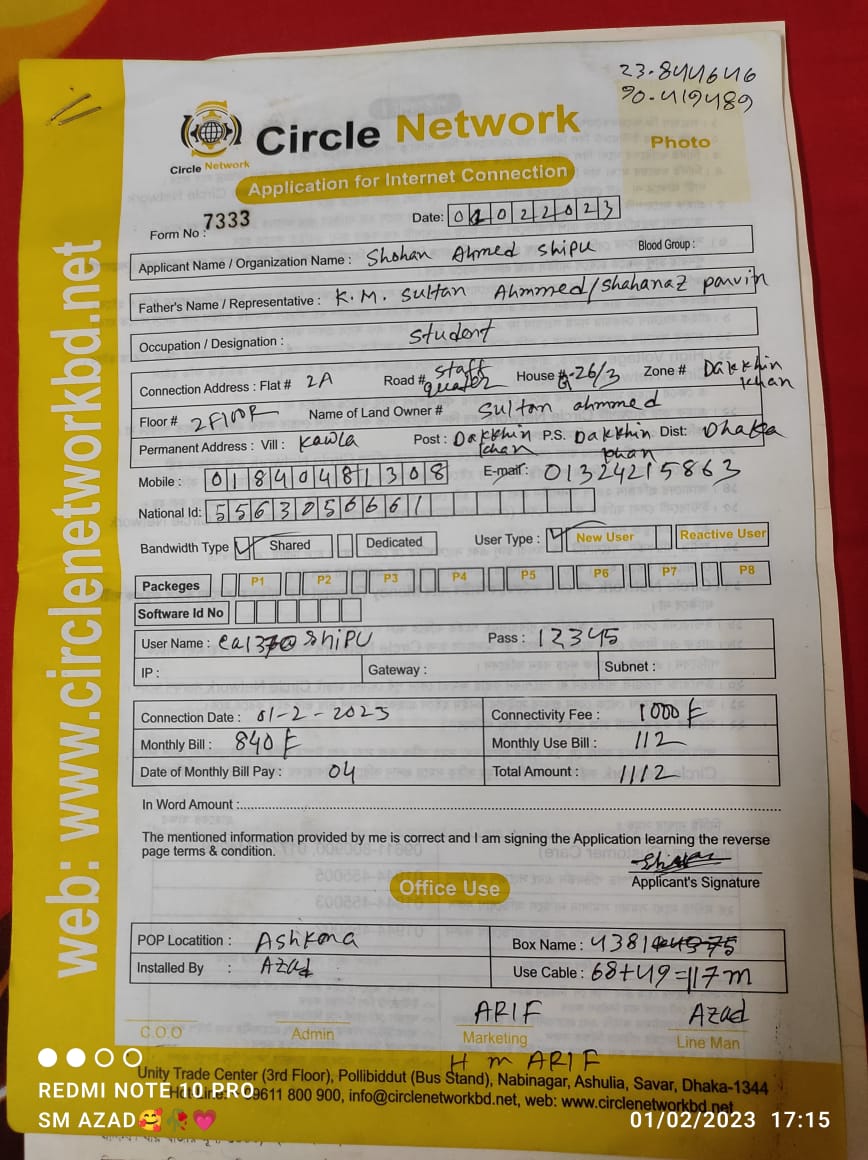 23.844646
90.419489
Circle Network
Circle Network
Photo
Application for Internet Connection
Form No : 7333
Date: 01022023
Applicant Name / Organization Name : Shohan Ahmed Shipu Blood Group :
Father's Name / Representative : K.M. Sultan Ahmmed/Shahanaz parvin
Occupation / Designation : Student
Connection Address : Flat # 2A Road # Staff quater House # G-26/3 Zone # Dakkhin khan
Floor # 2 Floor Name of Land Owner # Sultan ahmmed
Permanent Address : Vill : Kawla Post : Dakkhin khan P.S. Dakkhin khan Dist: Dhaka
Mobile : 01840481308 E-mail: 01324215863
National Id: 5563056661
Bandwidth Type Shared Dedicated User Type : New User Reactive User
Packeges P1 P2 P3 P4 P5 P6 P7 P8
Software Id No
User Name : Shipu Pass : 12345
IP : Gateway : Subnet :
Connection Date : 01-2-2023 Connectivity Fee : 1000
Monthly Bill : 840 Monthly Use Bill : 112
Date of Monthly Bill Pay : 04 Total Amount : 1112
In Word Amount :
The mentioned information provided by me is correct and I am signing the Application learning the reverse
page terms & condition.
Applicant's Signature
Office Use
POP Locatition : Ashkona Box Name : 4381
Installed By : Azad Use Cable : 68+49=117m
ARIF Azad
C.O.O Admin Marketing Line Man
H m ARIF
Unity Trade Center (3rd Floor), Pollibiddut (Bus Stand), Nabinagar, Ashulia, Savar, Dhaka-1344
Hot Line: 09611 800 900, info@circlenetworkbd.net, web: www.circlenetworkbd.net
web: www.circlenetworkbd.net
REDMI NOTE 10 PRO
SM AZAD🥰🥀💗
01/02/2023 17:15